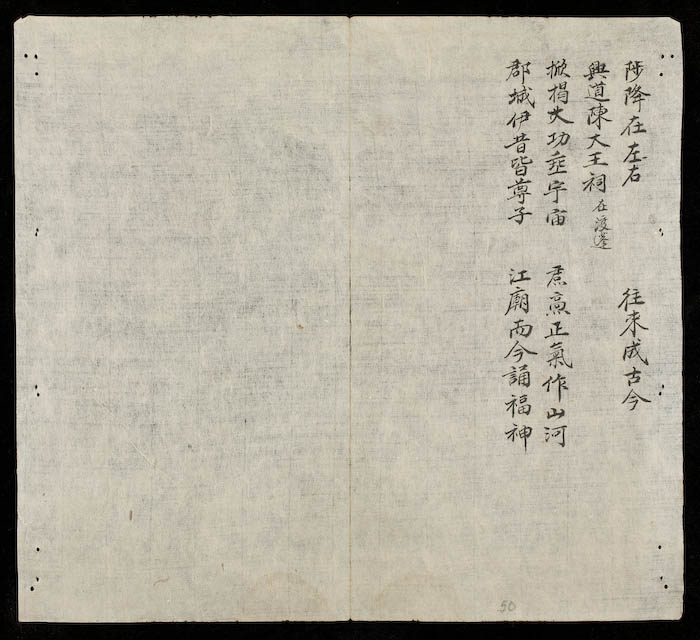 陟降在左右　往來成古今
興道陳大王祠在渡蓬
掀揭大功垂宇宙　焄蒿正氣作山河
郡城伊昔皆尊子　江廟而今誦福神
50